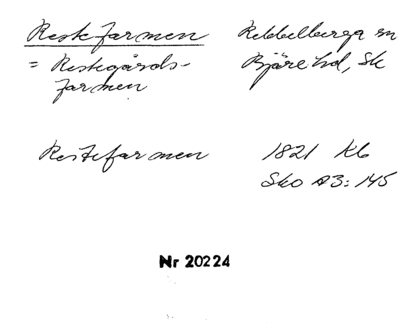 Reskfarmen
Rebbelberga sn
= Reskgårds-
farmen
Bjäre hd, Sk
Reskefarmen
1821 Kb
Sko A3:145
Nr 20224